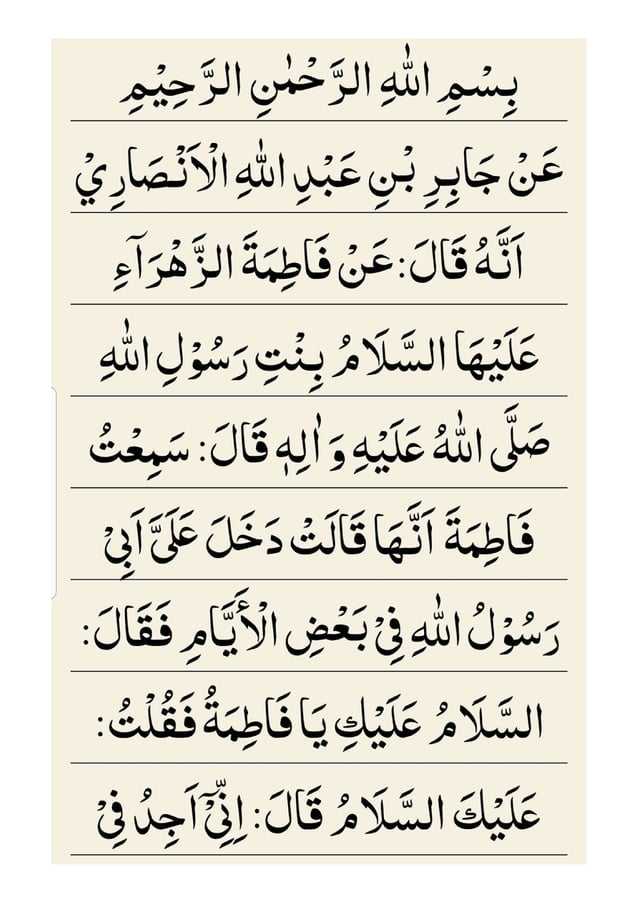 بِسْمِ اللهِ الرَّحْمٰنِ الرَّحِيْمِ
عَنْ جَابِرِ بْنِ عَبْدِ اللهِ الْاَنْصَارِيْ
اَنَّهُ قَالَ: عَنْ فَاطِمَةَ الزَّهْرَآءِ
عَلَيْهَا السَّلَامُ بِنْتِ رَسُوْلِ اللهِ
صَلَّى اللهُ عَلَيْهِ وَ اٰلِهٖ قَالَ: سَمِعْتُ
فَاطِمَةَ اَنَّهَا قَالَتْ دَخَلَ عَلَىَّ اَبِىْ
رَسُوْلُ اللهِ فِىْ بَعْضِ الْأَيَّامِ فَقَالَ:
السَّلَامُ عَلَيْكِ يَا فَاطِمَةُ فَقُلْتُ:
عَلَيْكَ السَّلَامُ قَالَ: اِنِّىْٓ اَجِدُ فِىْ